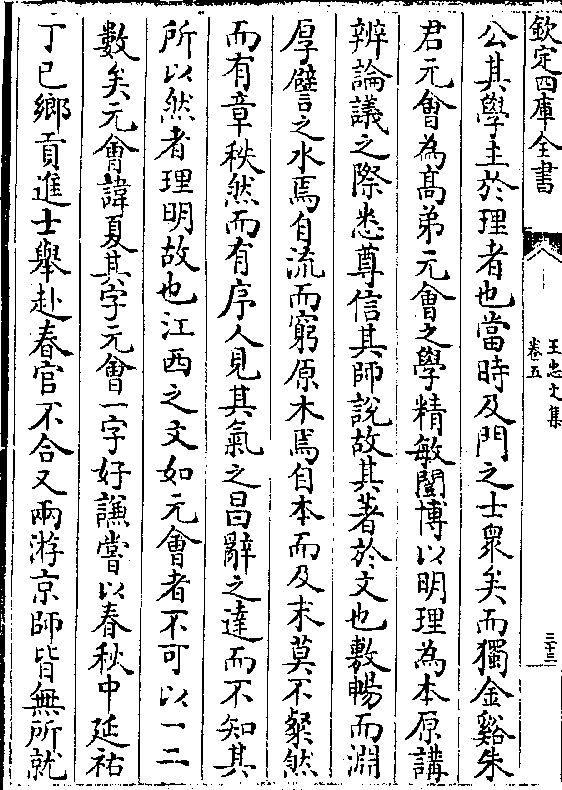 欽定四庫全書
王忠文集
卷五
三十三
公其學主於理者也當時及門之士衆矣而獨金谿朱
君元會為髙弟元會之學精敏閎博以明理為本原講
辨論議之際悉尊信其師說故其著於文也敷暢而淵
厚譬之水焉自流而窮原木焉自本而及末莫不粲然
而有章秩然而有序人見其氣之昌辭之達而不知其
所以然者理明故也江西之文如元會者不可以一二
數矣元會諱夏其字元會一字好謙嘗以春秋中延祐
丁巳鄉貢進士舉赴春官不合又兩游京師皆無所就